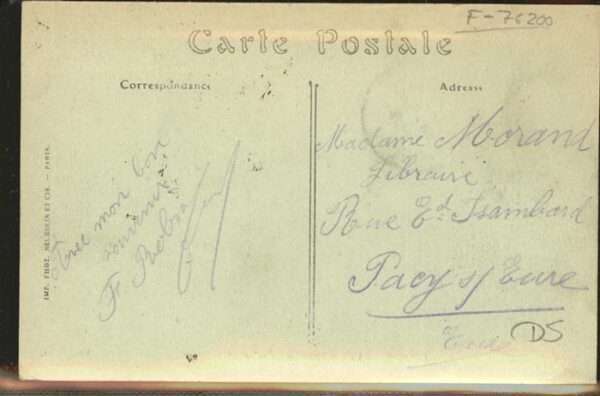 F-76200
Carte Postale
Correspondance
Adresse
Avec mon bon
souvenir
F
Madame Morand
Libraire
Rue Ed. Isambard
Pacy s/ Eure
Eure
DS
IMP. PHOT. NEURDEIN ET CIE. — PARIS.